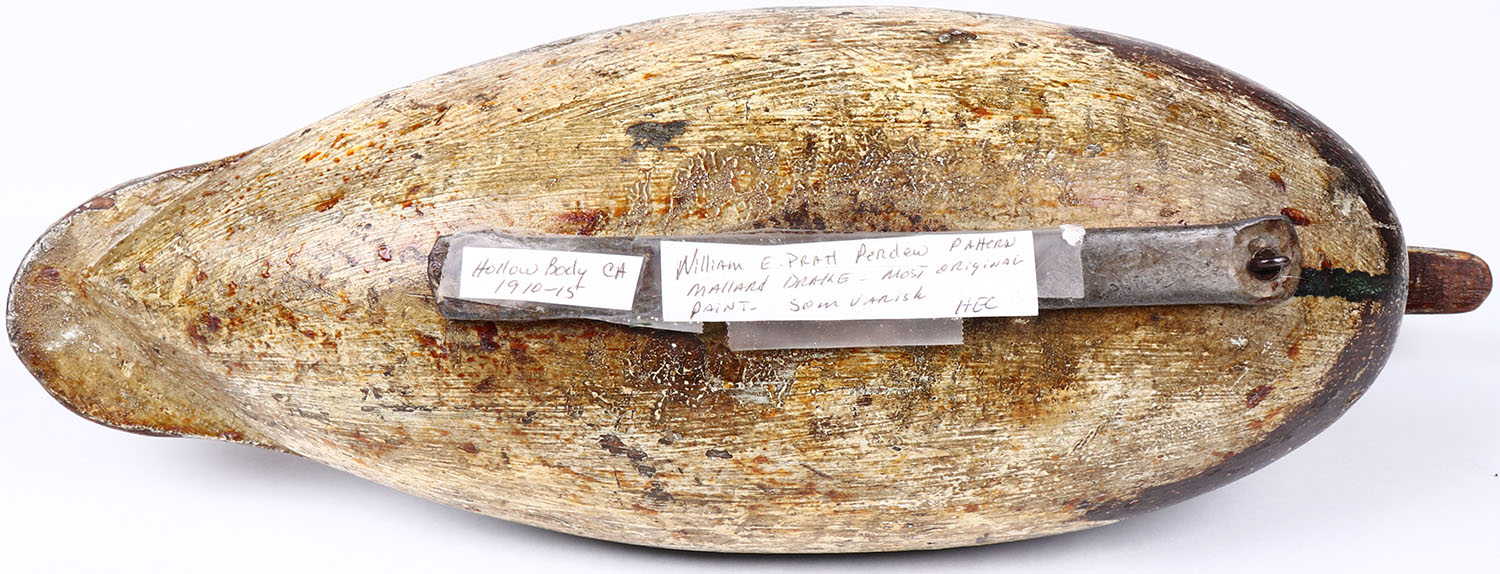 Hollow Body CA
1910-15
William E. Pratt Perdew Pattern
Mallard Drake - Most original
Paint - Som Varish HEC